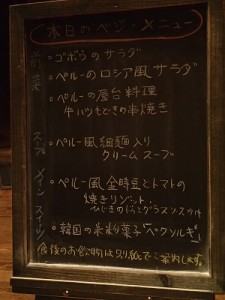 本日のベジ・メニュー
前菜
・ゴボウのサラダ
・ペルーのロシア風サラダ
・ペルーの屋台料理
牛ハツもどきの串焼き
スープ
・ペルー風細麺入り
クリームスープ
メイン
・ペルー風金時豆とトマトの
焼きリゾット
ひじきの
スイーツ
・韓国の米粉菓子"ペクソルギ"
食後のお飲物は別紙でご案内します